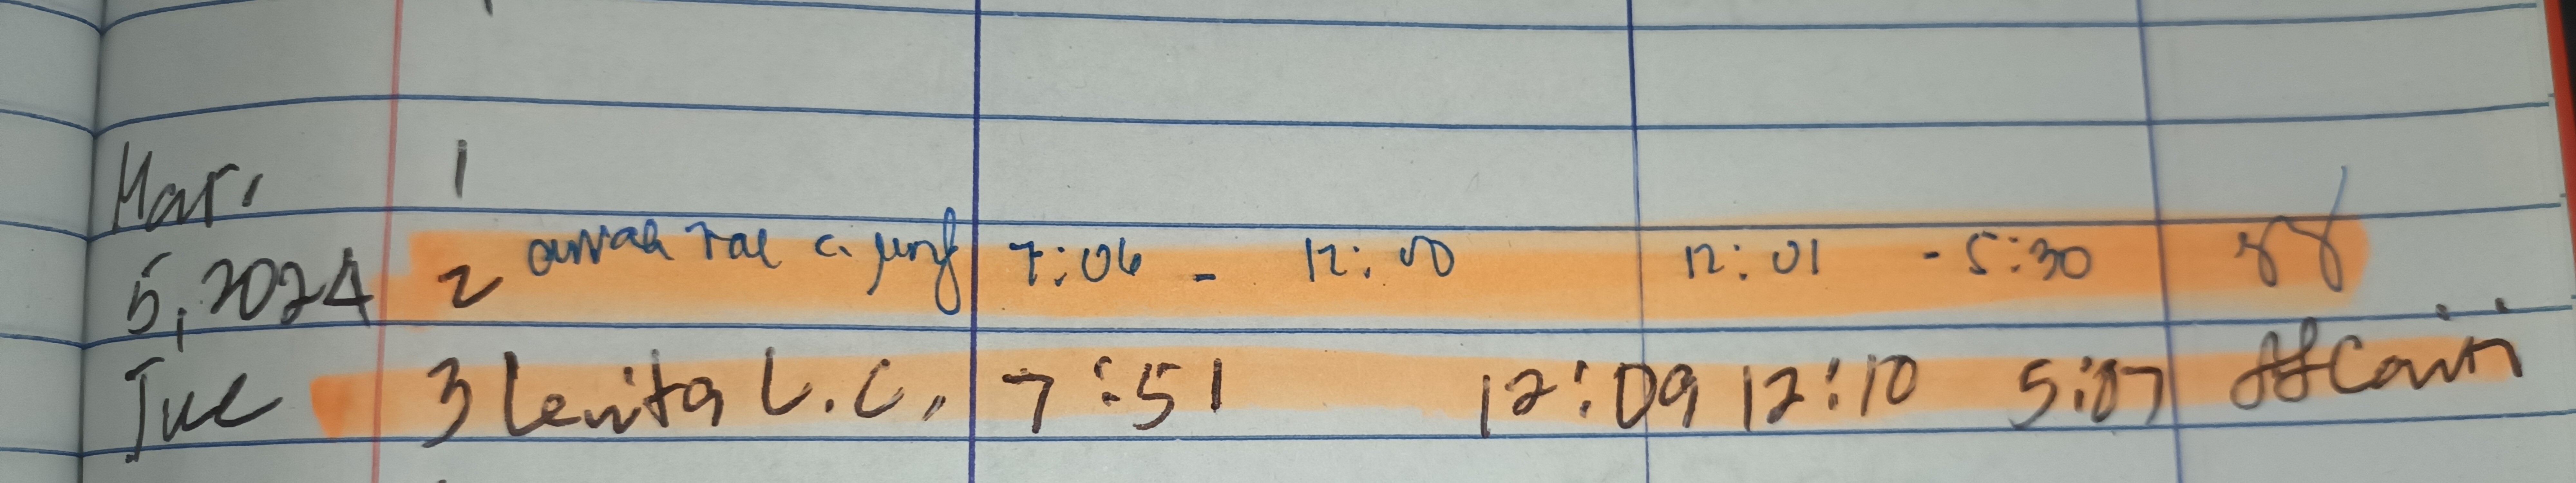 Mar. 1
5, 2024 2 rae c. 7:06 - 12:00 12:01 - 5:30
Tue 3 Lenita L.C. 7:51 12:09 12:10 5:07